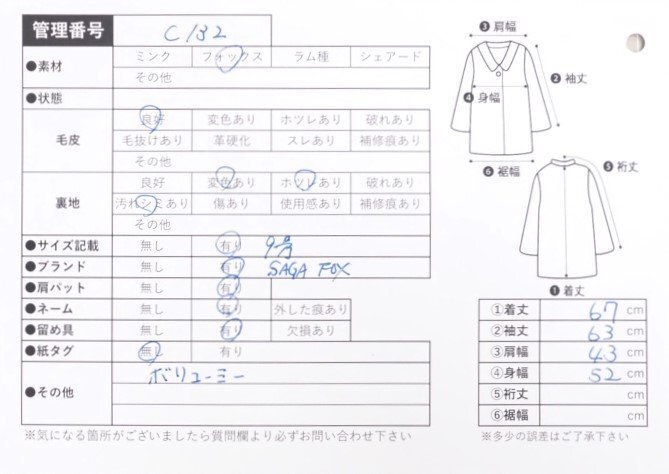 管理番号 C132
●素材 ミンク フォックス ラム種 シェアード
その他
●状態
毛皮 良好 変色あり ホツレあり 破れあり
毛抜けあり 革硬化 スレあり 補修痕あり
その他
裏地 良好 変色あり ホツレあり 破れあり
汚れシミあり 傷あり 使用感あり 補修痕あり
その他
●サイズ記載 無し 有り 9号
●ブランド 無し 有り SAGA FOX
●肩パット 無し 有り
●ネーム 無し 有り 外した痕あり
●留め具 無し 有り 欠損あり
●紙タグ 無し 有り
●その他 ボリューミー
※気になる箇所がございましたら質問欄より必ずお問い合わせ下さい
❸肩幅
❷袖丈
❹身幅
❻裾幅
❺裄丈
❶着丈
①着丈 67 cm
②袖丈 63 cm
③肩幅 43 cm
④身幅 52 cm
⑤裄丈 cm
⑥裾幅 cm
※多少の誤差はご了承下さい